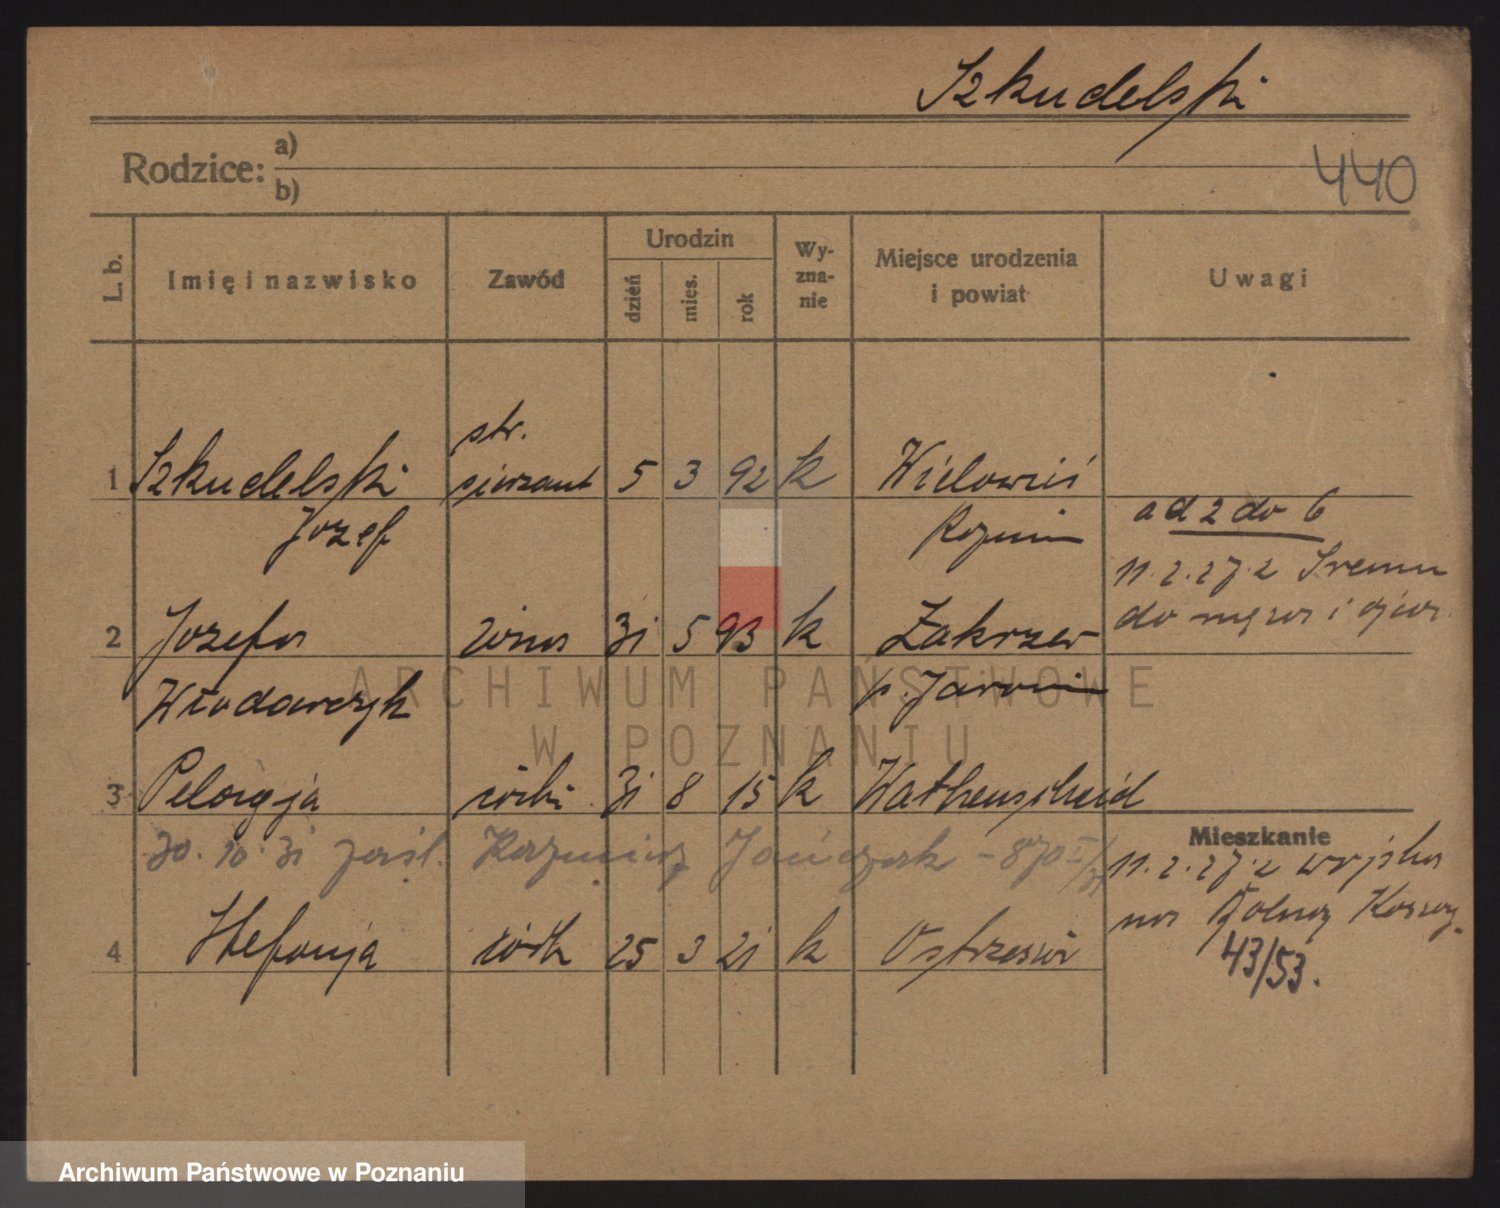 Szkudelski
Rodzice: a)
b)
440
L. b. Imię i nazwisko Zawód Urodzin dzień mies. rok Wy-zna-nie Miejsce urodzenia i powiat Uwagi
str.
1 Szkudelski sierżant 5 3 92 k
Józef
ad 2 do 6
11.2.27. z Śremu
do męża i ojca.
2 Józefa żona 31 5 93 k Zakrzew
Włodarczyk p. Jarocin
3 Pelagja córka 31 8 15 k Wathenscheid
30.10.31 zaśl. Kazimierz
Mieszkanie
11.2.27. z
43/53.
4 Stefanja córk 25 3 21 k Ostrzeszów
ARCHIWUM PAŃSTWOWE
W POZNANIU
Archiwum Państwowe w Poznaniu